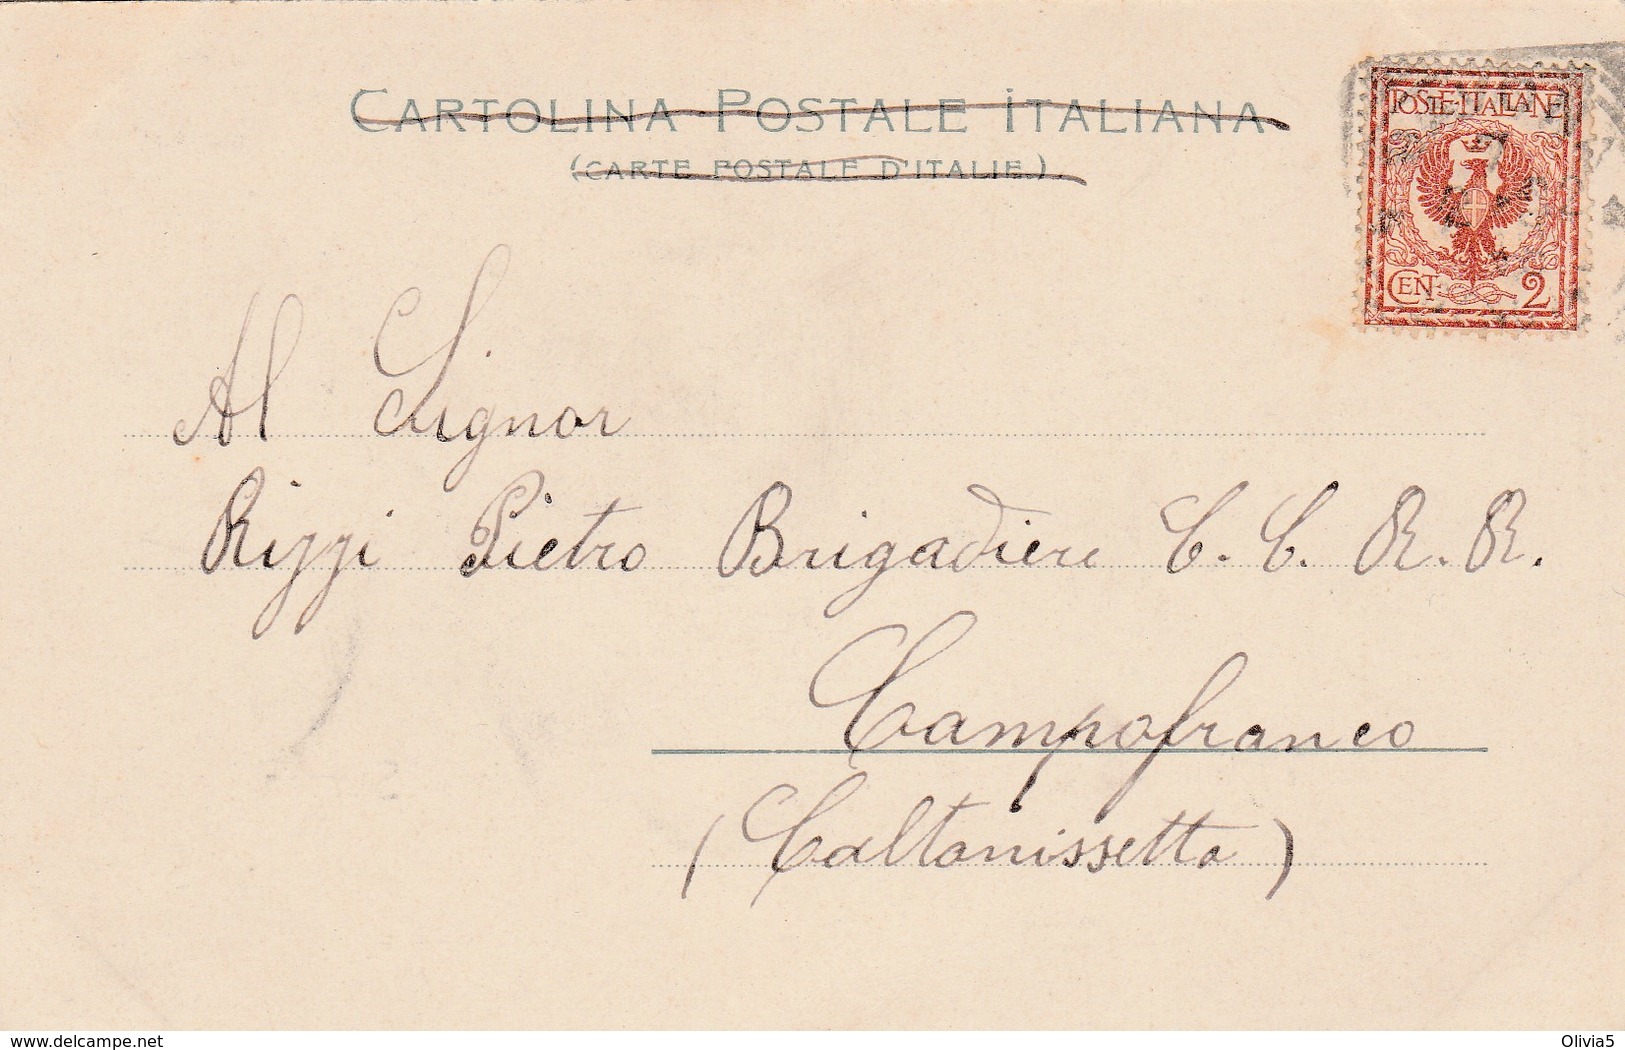 CARTOLINA POSTALE ITALIANA
(CARTE POSTALE D'ITALIE.)
POSTE·ITALIANE
CENT. 2
Al Signor
Rizzi Pietro Brigadiere C. C. R. R.
Campofranco
(Caltanissetta)
www.delcampe.net
Olivia5